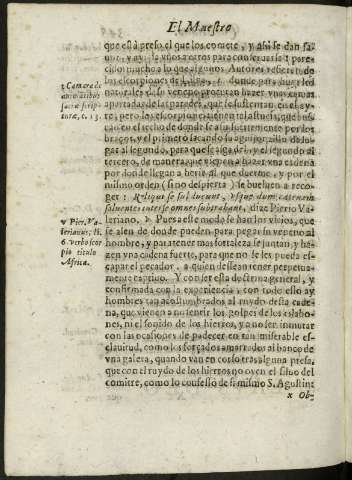 El Maestro
que està preso el que los comete, y assi se dan fa-
uor, y ayuda vnos a otros para conseruarse: pare-
cido mucho a lo que algunos Autores refieren de
los escorpiones de Libia, t donde para huyr los
naturales de su veneno procuran hazer vnas camas
apartadas de las paredes, que se sustentan en el ay-
re, pero los escorpiones tienen tal astucia, que bus-
can en el techo
braços, y el primero
gar al segundo, para que se haga de y el segundo al
tercero, de manera que vienen a hazer vna cadena
por donde llegan a herir al que duerme, y por el
mismo orden (si no despierta) se bueluen a reco-
ger:
saluent: inter se omnes
leriano. v Pues a este modo se han los vicios, que
se asen de donde pueden para pegar su veneno al
hombre, y para tener mas fortaleza se juntan, y ha-
zen vna cadena fuerte, para que no se les pueda es-
capar el pecador, a quien dessean tener perpetua-
mente captiuo. Y con ser esta doctrina general, y
confirmada con la experiencia, con todo esso ay
hombres tan acostumbrados al ruydo desta cade-
na, que vienen a no sentir los golpes de los eslabo-
nes, ni el sonido de los hierros, y a no se inmutar
con las ocasiones de padecer en tan miserable es-
clauitud, como los forçados amarrados al banco de
vna galera, quando van en corso tras alguna presa,
que con el ruydo de los hierros no oyen el siluo del
comitre, como lo confesso de si mismo S. Agustin:
x Ob-
t Camara de
sacræ scrip-
turæ, c. 13.
v Pier. Va-
lerianus, li.
6. verbo scor
pio
Africa.